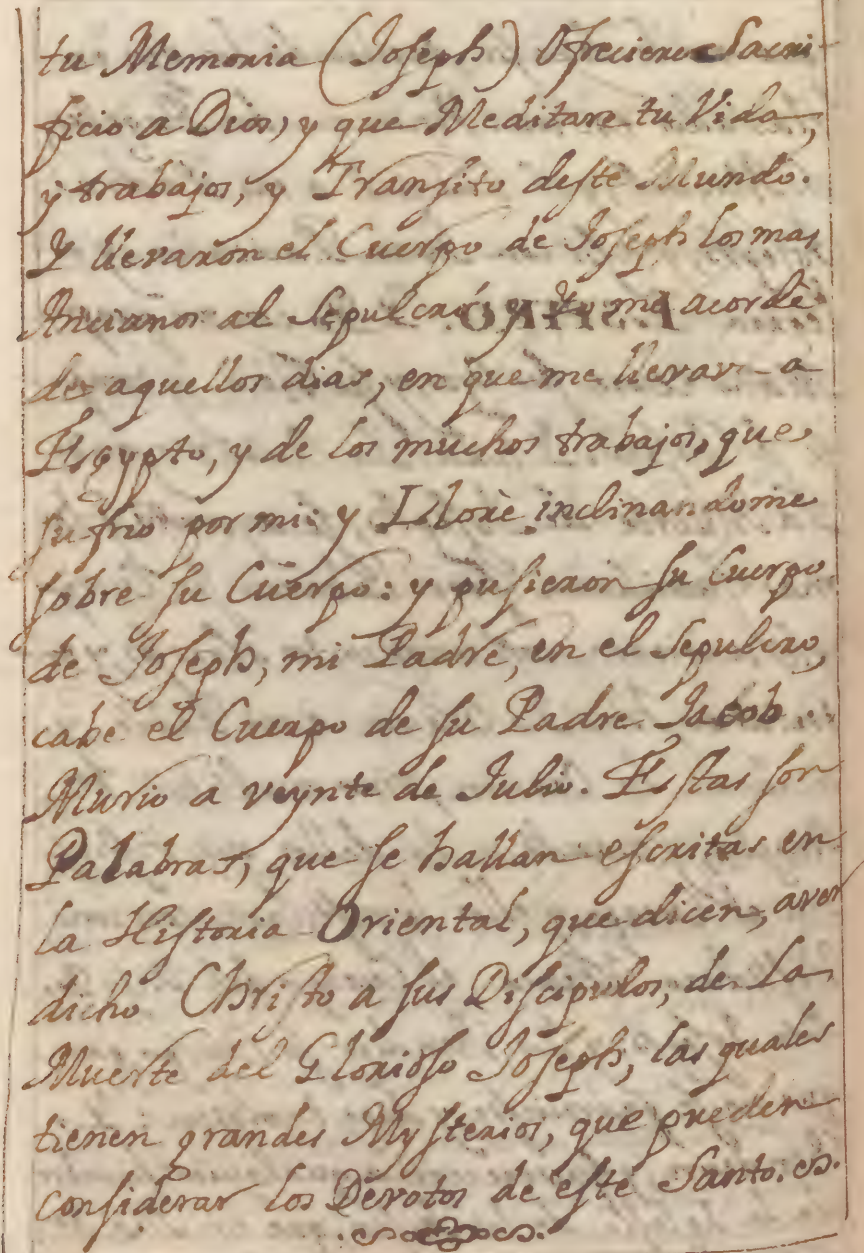 tu Memoria (Joseph) Ofreciere Sacri-
ficio a Dios, y que Meditare tu Vida,
y trabajos, y Transito deste Mundo.
Y llevaron el Cuerpo de Joseph los mas
Ancianos al Sepulcro: y Yo me acordè
de aquellos dias, en que me llevava a
Egypto, y de los muchos trabajos, que
sufrio por mi: y Llorè inclinandome
sobre su Cuerpo: y pusieron su Cuerpo
de Joseph, mi Padre, en el Sepulcro,
cabe el Cuerpo de su Padre Jacob.
Murio a veynte de Julio. Estas son
Palabras, que se hallan escritas en
la Historia Oriental, que dicen, aver
dicho Christo a sus Discipulos, de la
Muerte del Glorioso Joseph, las quales
tienen grandes Mysterios, que pueden
considerar los Devotos de este Santo.